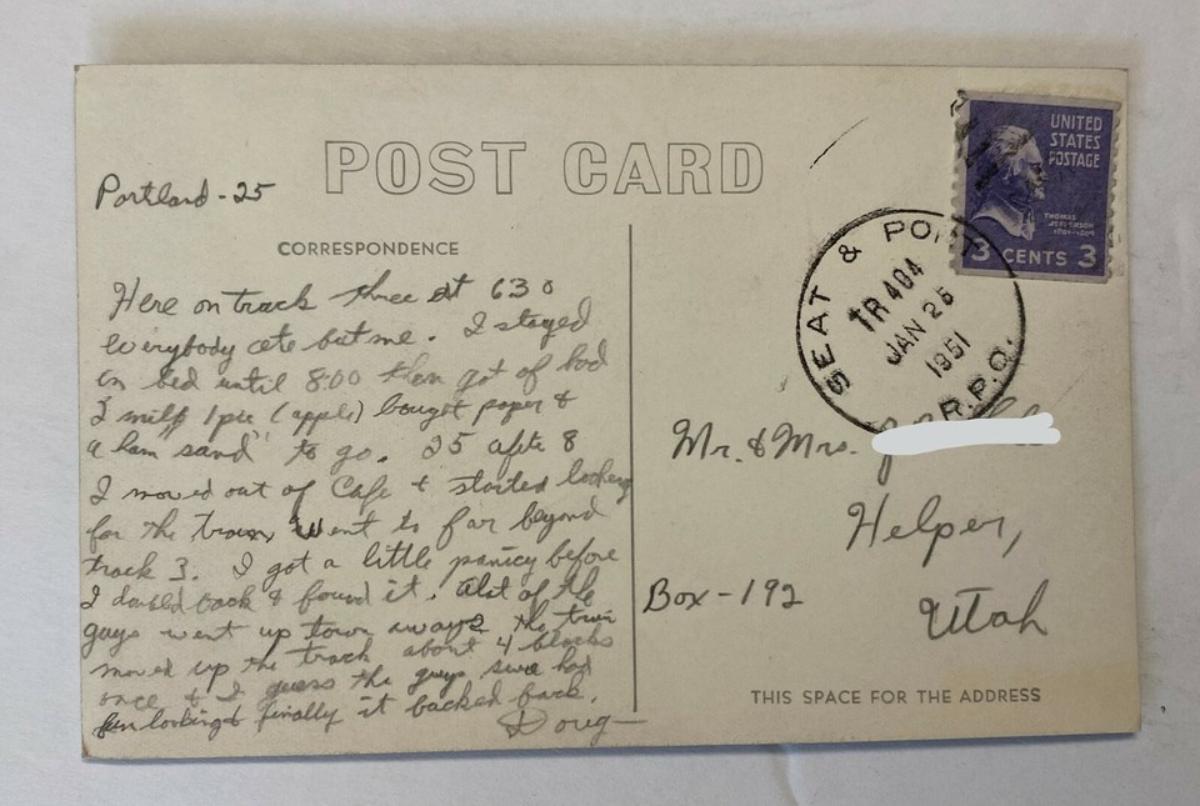 POST CARD
Portland - 25
CORRESPONDENCE
Here on track three at 630
everybody ate but me. I stayed
in bed until 8:00 then got of had
I milk 1 pie (apple) bought paper &
a ham sand" to go. 25 after 8
I moved out of Cafe + started looking
for the train, Went to far beyond
track 3. I got a little panicy before
I doubled back & found it. Alot of the
guys went up town aways the train
moved up the track about 4 blocks
once + I guess the guys sure had
fun looking finally it backed back.
Doug—
UNITED
STATES
POSTAGE
THOMAS
JEFFERSON
1801-1809
3 CENTS 3
SEAT & PORT
TR 404
JAN 25
1951
R.P.O.
Mr. & Mrs.
Helper,
Box - 192
Utah
THIS SPACE FOR THE ADDRESS